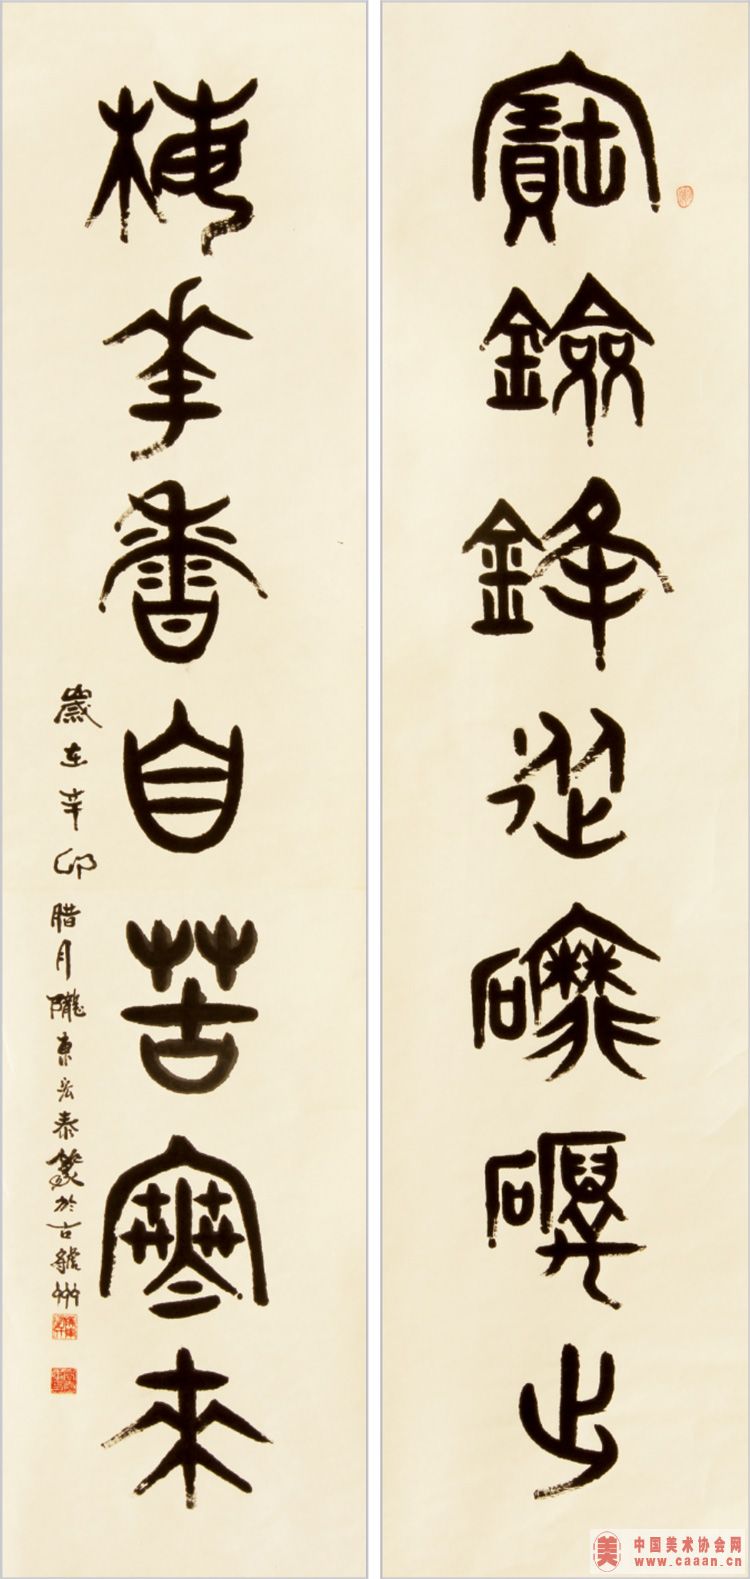 寶鐱鋒從磨礪出
梅華香自苦寒來
歲在辛卯腊月隴東宏泰篆於古虢州
美 中国美术协会网
www.caaan.cn